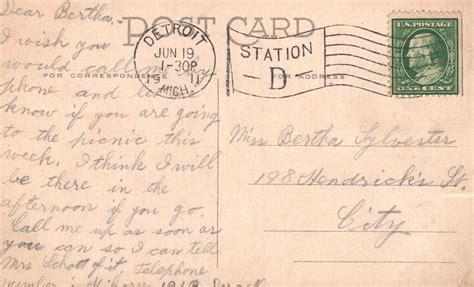 Dear Bertha:
I wish you
would call me
phone and
know if you are going
to the picnic this
week. I think I will
be there in the
afternoon if you go.
Call me up as soon as
you can so I can tell
Mrs Schott of it, telephone
number is
POST CARD
FOR CORRESPONDENCE
FOR ADDRESS
DETROIT
JUN 19
1-30P
19 11
MICH.
STATION
D
U.S. POSTAGE
ONE CENT
Miss Bertha Sylvester
198 Hendrick's St.
City